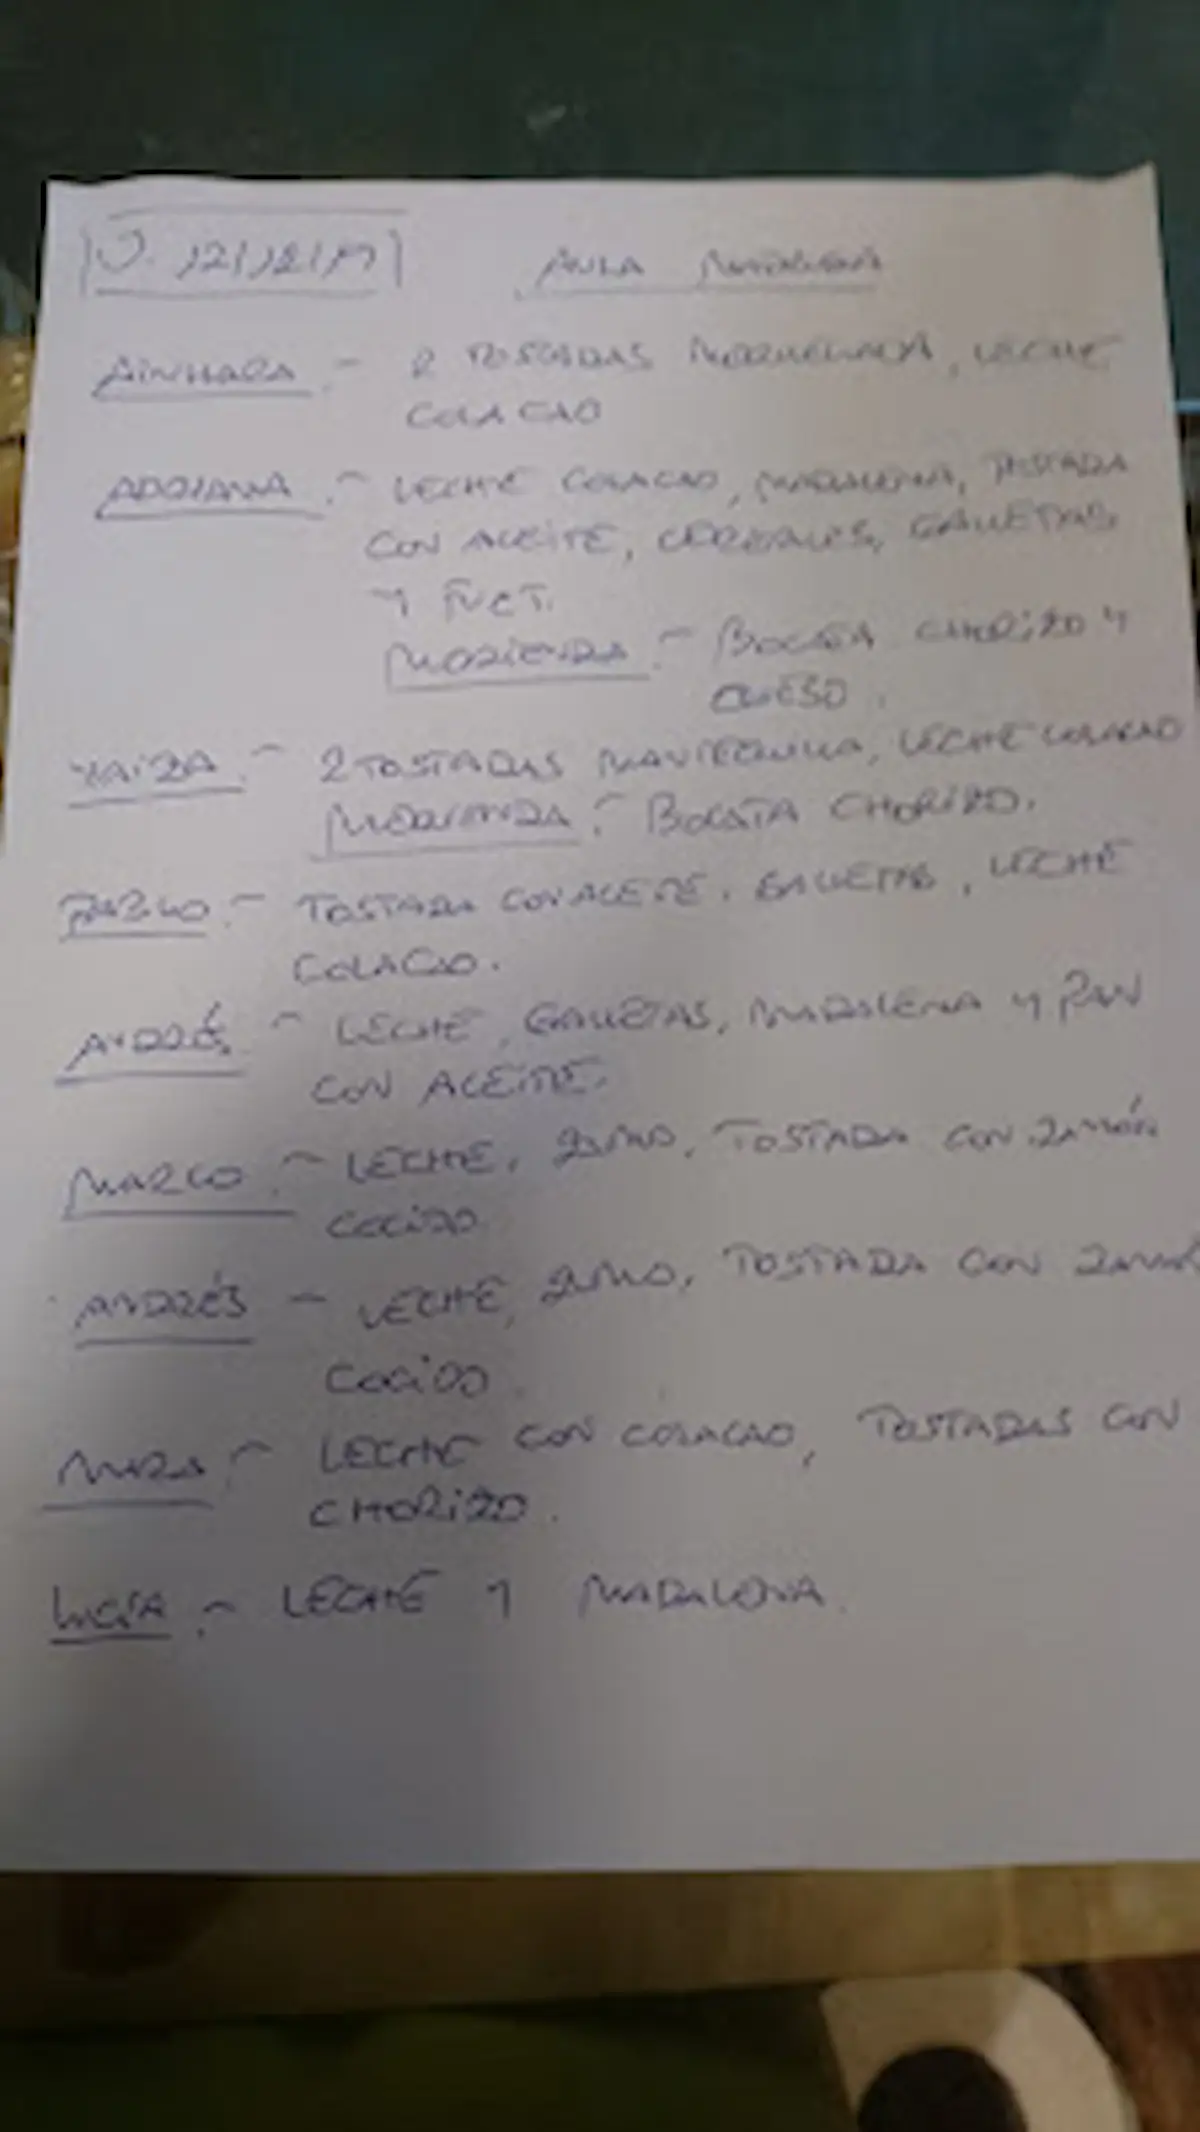 J. 12/12/19 AULA MATINAL
AINHARA.- 2 TOSTADAS MERMELADA, LECHE
COLA CAO
ADRIANA.- LECHE COLACAO, MADALENA, TOSTADA
CON ACEITE, CEREALES, GALLETAS
Y
MERIENDA.- BOCATA CHORIZO Y
QUESO.
YAIZA.- 2 TOSTADAS MANTEQUILLA, LECHE COLACAO
MERIENDA.- BOCATA CHORIZO.
PABLO.- TOSTADA CON ACEITE, GALLETAS, LECHE
COLACAO.
ANDRÉ.- LECHE, GALLETAS, MADALENA Y PAN
CON ACEITE.
MARCO.- LECHE, ZUMO, TOSTADA CON JAMÓN
COCIDO
ANDRÉS - LECHE, ZUMO, TOSTADA CON JAMÓN
COCIDO.
LECHE CON COLACAO, TOSTADAS CON
CHORIZO.
LUCÍA.- LECHE Y MADALENA.